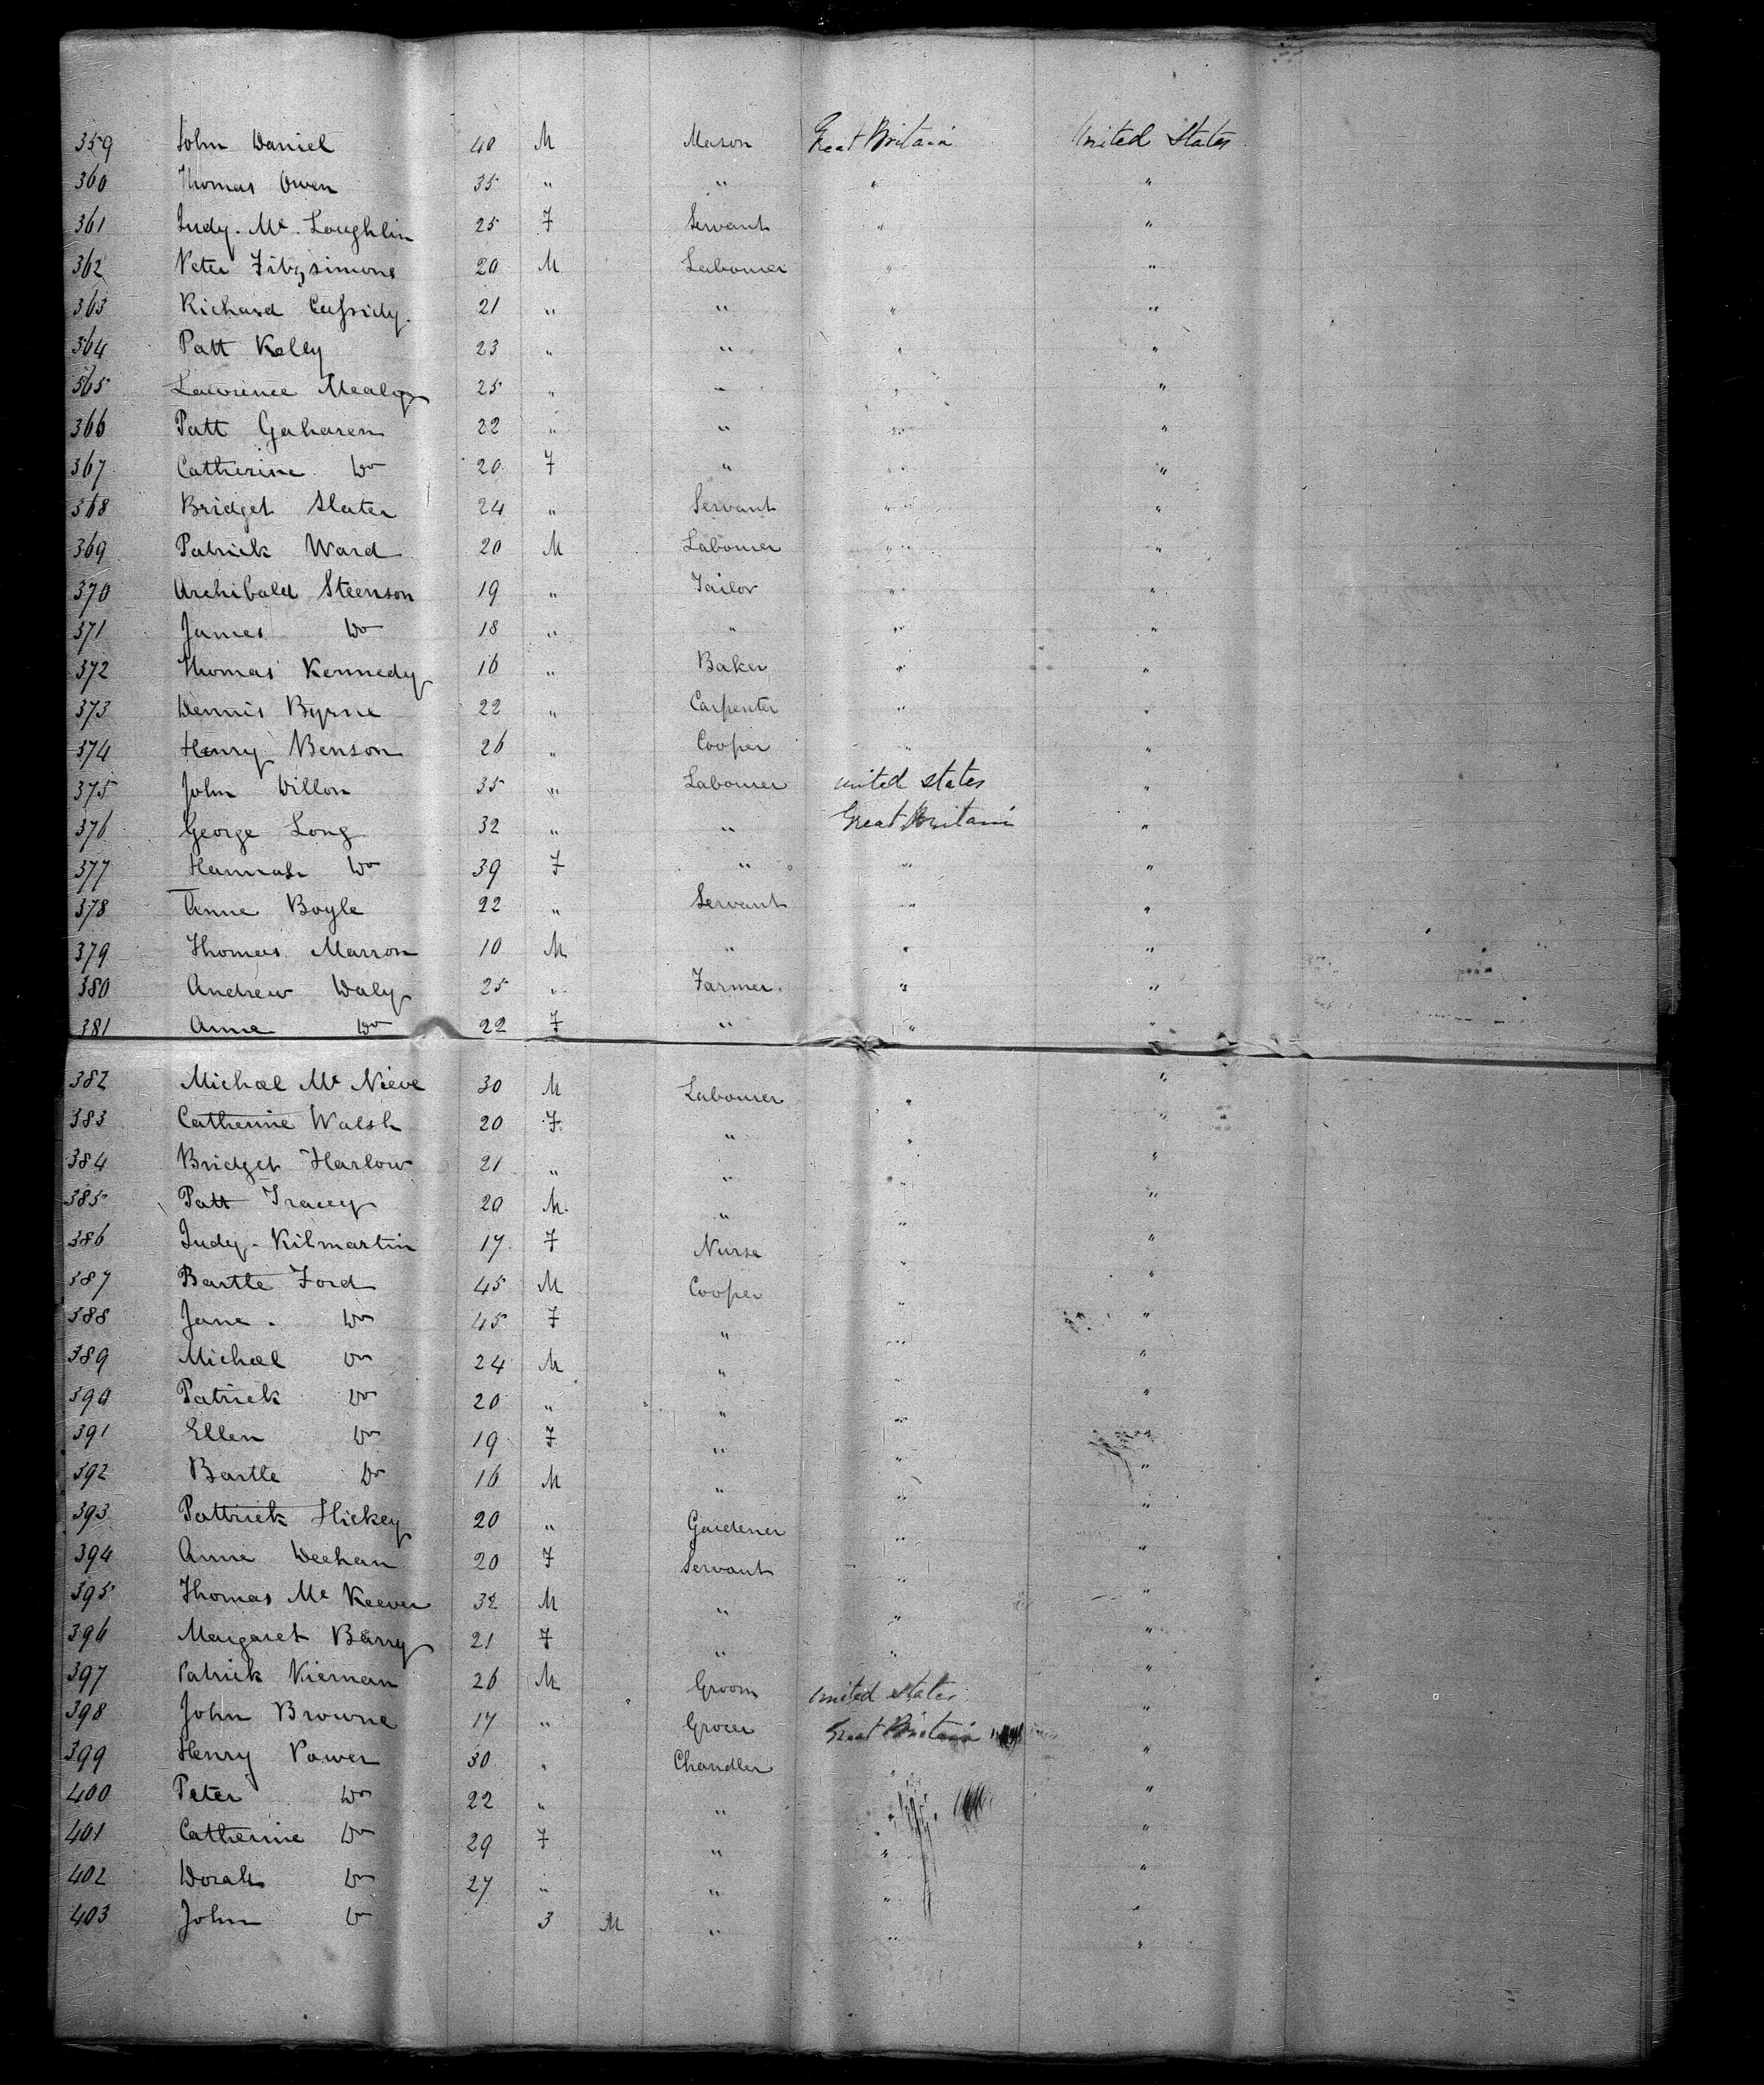 359 John Daniel 40 M Mason Great Britain United States
360 Thomas Owen 35 " " " "
361 Judy. Mc. Loughlin 25 F Servant " "
362 Peter Fitzsimons 20 M Labourer " "
363 Richard Cassidy. 21 " " " "
364 Patt Kelly 23 " " " "
365 Lawrence Mealy 25 " " " "
366 Patt Gaharen 22 " " " "
367 Catherine Do 20 F " " "
368 Bridget Slater 24 " Servant " "
369 Patrick Ward 20 M Labourer " "
370 Archibald Steenson 19 " Tailor " "
371 James Do 18 " " " "
372 Thomas Kennedy 16 " Baker " "
373 Dennis Byrne 22 " Carpenter " "
374 Henry Benson 26 " Cooper " "
375 John Dillon 35 " Labourer united states "
376 George Long 32 " " Great Britain "
377 Hannah Do 39 F " " "
378 Anne Boyle 22 " Servant " "
379 Thomas Marron 10 M " " "
380 Andrew Daly 25 " Farmer. " "
381 Anne Do 22 F " " "
382 Michael Mc Nieve 30 M Labourer " "
383 Catherine Walsh 20 F. " " "
384 Bridget Harlow 21 " " " "
385 Patt Tracey 20 M. " " "
386 Judy. Kilmartin 17 F Nurse " "
387 Bartle Ford 45 M Cooper " "
388 Jane. Do 45 F " " "
389 Michael Do 24 M " " "
390 Patrick Do 20 " " " "
391 Ellen Do 19 F " " "
392 Bartle Do 16 M " " "
393 Pattrick Hickey 20 " Gardener " "
394 Anne Deehan 20 F Servant " "
395 Thomas Mc Keever 32 M " " "
396 Margaret Barry 21 F " " "
397 Patrick Kiernan 26 M Groom united states "
398 John Browne 17 " Grocer Great Britain "
399 Henry Power 30 " Chandler " "
400 Peter Do 22 " " " "
401 Catherine Do 29 F " " "
402 Dorah Do 27 " " " "
403 John Do 3 M " " "